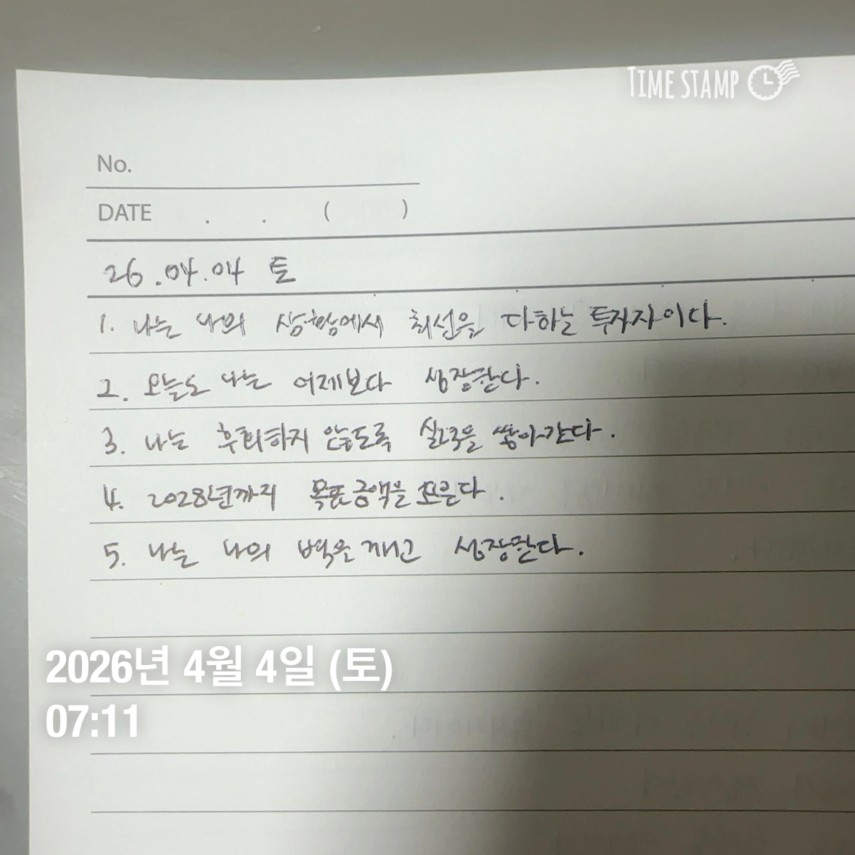 TIME STAMP
No.
DATE . . ( )
26.04.04 토
1. 나는 나의 상황에서 최선을 다하는 투자자이다.
2. 오늘도 나는 어제보다 성장한다.
3. 나는 후회하지 않도록 실력을 쌓아간다.
4. 2028년까지 목표금액을 모은다.
5. 나는 나의 벽을 깨고 성장한다.
2026년 4월 4일 (토)
07:11